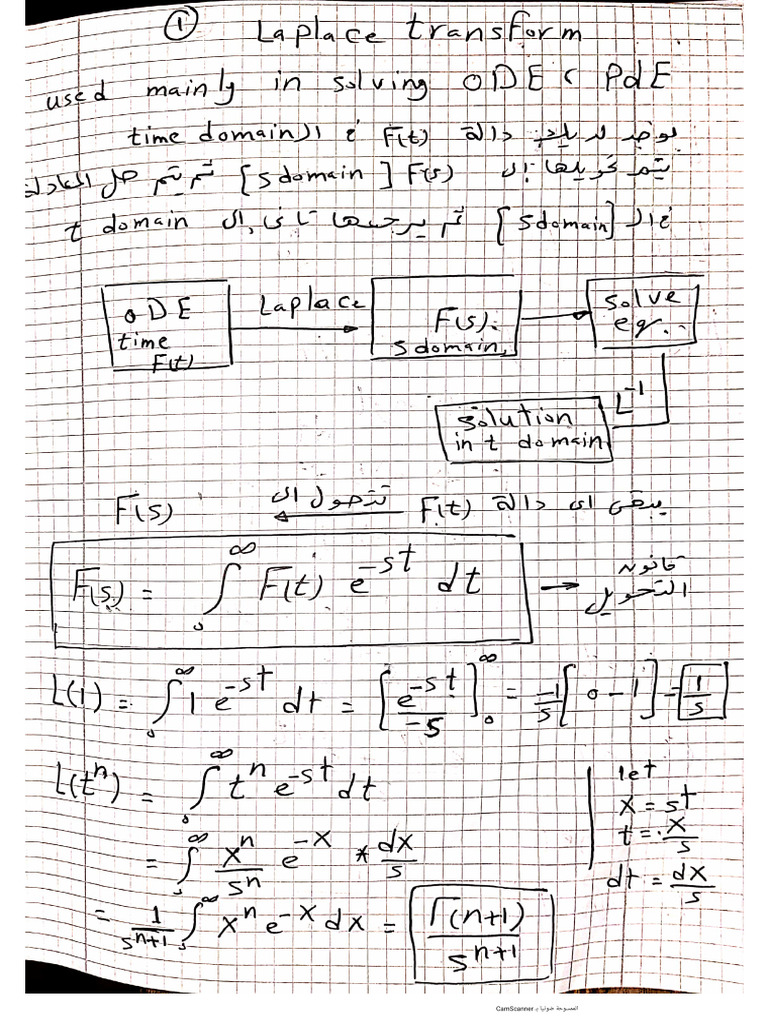 ① Laplace transform
used mainly in solving ODE & PdE
يوجد لديك دالة F(t) في ال time domain
يتم تحويلها إلى F(s) [s domain] ثم يتم حل المعادلة
في ال [s domain] ثم يرجعها تاني إلى t domain
ODE time F(t)
Laplace
F(s). s domain,
solve eq..
L⁻¹
solution in t domain
يبقى أي دالة F(t) تتحول إلى F(s)
F(s) = ∫₀^∞ F(t) e^{-st} dt → قانون التحويل
L(1) = ∫₀^∞ 1 e^{-st} dt = [e^{-st}/-s]₀^∞ = -1/s [0 - 1] = 1/s
L(tⁿ) = ∫₀^∞ tⁿ e^{-st} dt
let
x = st
t = x/s
dt = dx/s
= ∫₀^∞ xⁿ/sⁿ e^{-x} * dx/s
= 1/s^{n+1} ∫₀^∞ xⁿ e^{-x} dx = Γ(n+1)/s^{n+1}
الممسوحة ضوئيا بـ CamScanner